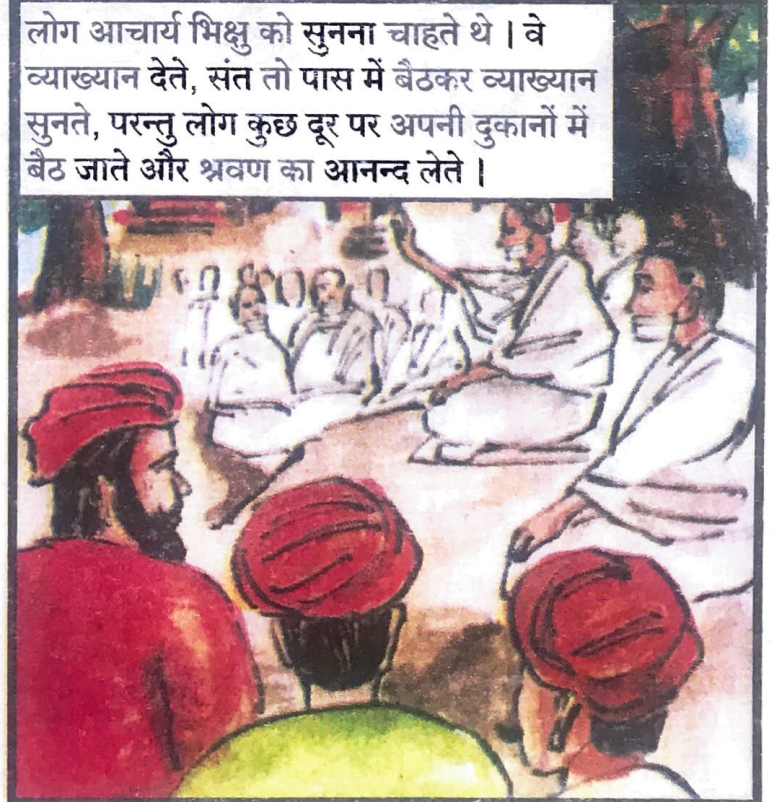 लोग आचार्य भिक्षु को सुनना चाहते थे । वे
व्याख्यान देते, संत तो पास में बैठकर व्याख्यान
सुनते, परन्तु लोग कुछ दूर पर अपनी दुकानों में
बैठ जाते और श्रवण का आनन्द लेते ।